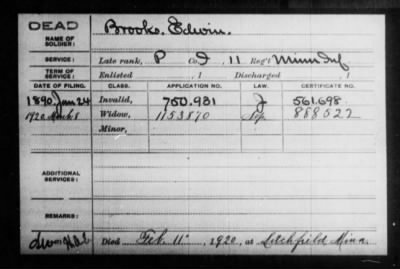 DEAD
NAME OF SOLDIER: Brooks, Edwin.
SERVICE: Late rank, P Co. I, 11 Reg't Minn Inf
TERM OF SERVICE: Enlisted , 1 Discharged , 1
DATE OF FILING. CLASS. APPLICATION NO. LAW. CERTIFICATE NO.
1890 Jan 24 Invalid, 750.931 J 561.698
1920 Mch 8 Widow, 1153870 Sep. 888522
Minor,
ADDITIONAL SERVICES:
REMARKS:
Died Feb. 11, 1920, at Litchfield Minn.